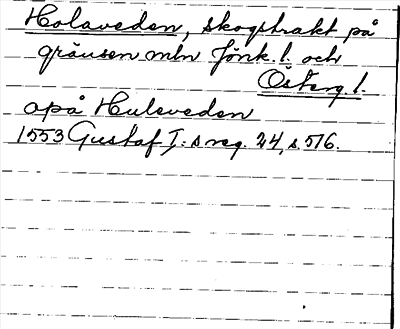 Holaveden, skogstrakt på
gränsen mln Jönk. l. och
Österg. l.
apå Huleveden
1553 Gustaf I:s reg. 24, s. 576.